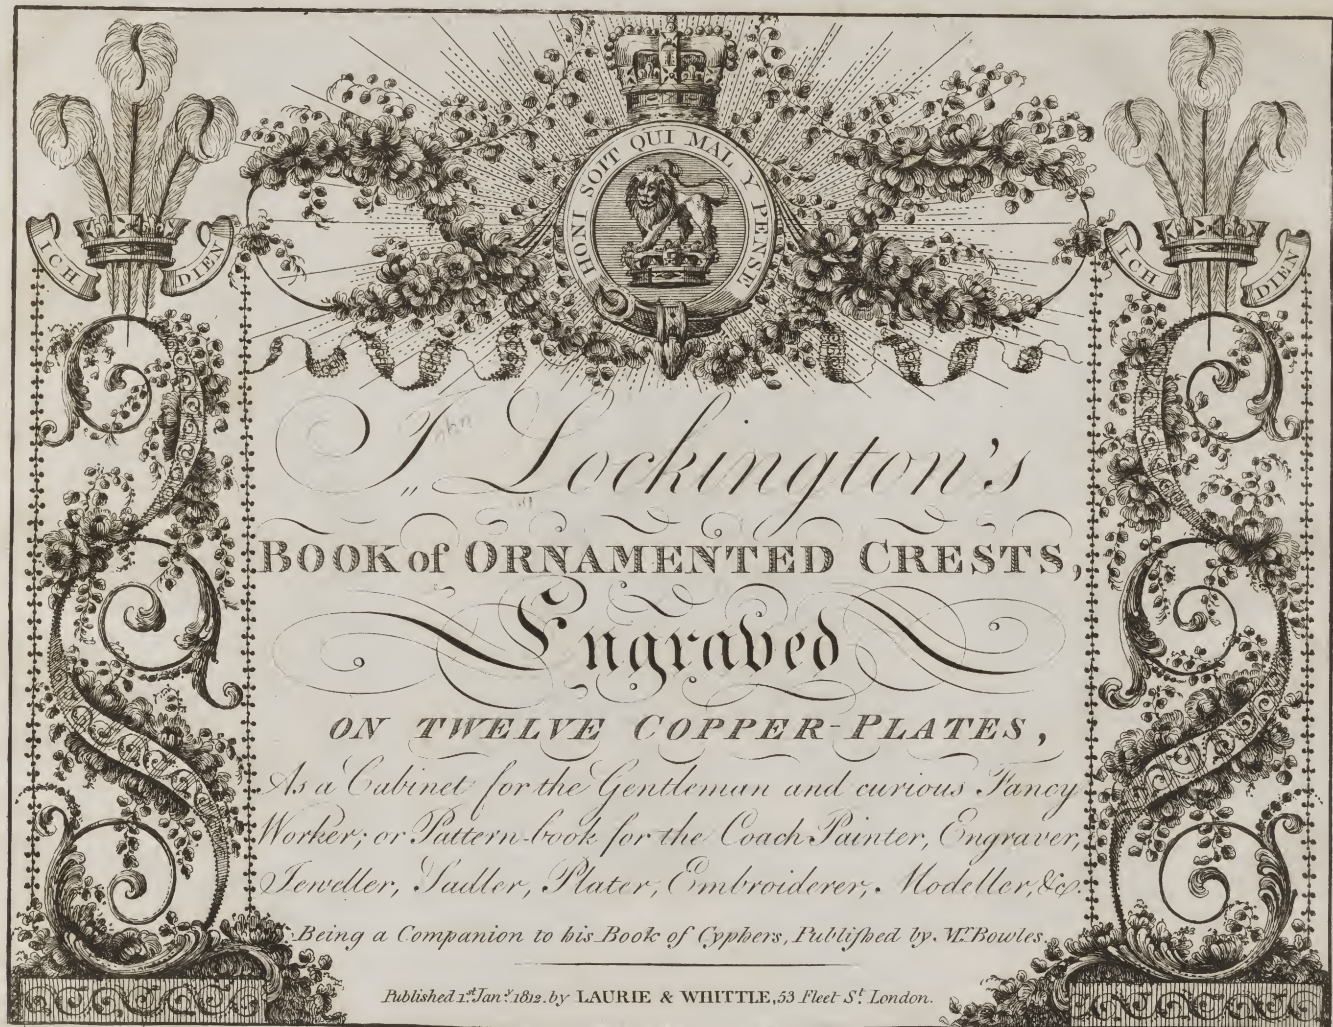 HONI SOIT QUI MAL Y PENSE
ICH DIEN
ICH DIEN
J,, Lockington's
BOOK of ORNAMENTED CRESTS,
Engraved
ON TWELVE COPPER-PLATES,
As a Cabinet for the Gentleman and curious Fancy
Worker; or Pattern-book for the Coach Painter, Engraver,
Jeweller, Sadler, Plater, Embroiderer, Modeller, &c.
Being a Companion to his Book of Cyphers, Publiſhed by Mr. Bowles.
Published 1st. Jany. 1812. by LAURIE & WHITTLE, 53 Fleet St. London.